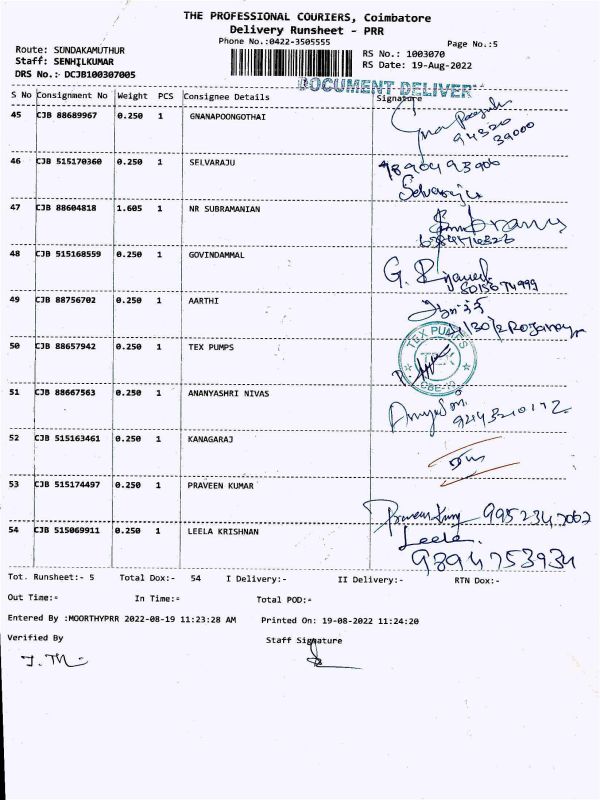 THE PROFESSIONAL COURIERS, Coimbatore
Delivery Runsheet - PRR
Phone No.:0422-3505555
Page No.:5
Route: SUNDAKAMUTHUR
RS No.: 1003070
Staff: SENHILKUMAR
RS Date: 19-Aug-2022
DRS No.: DCJB100307005
DOCUMENT DELIVER
S No Consignment No Weight PCS Consignee Details Signature
45 CJB 88689967 0.250 1 GNANAPOONGOTHAI
94320
39000
46 CJB 515170360 0.250 1 SELVARAJU
Selvaraju
47 CJB 88604818 1.605 1 NR SUBRAMANIAN
48 CJB 515168559 0.250 1 GOVINDAMMAL
G.
49 CJB 88756702 0.250 1 AARTHI
50 CJB 88657942 0.250 1 TEX PUMPS
TEX PUMPS
51 CJB 88667563 0.250 1 ANANYASHRI NIVAS
52 CJB 515163461 0.250 1 KANAGARAJ
53 CJB 515174497 0.250 1 PRAVEEN KUMAR
Praveen Kumar 9952347062
54 CJB 515069911 0.250 1 LEELA KRISHNAN
Leela.
9894753934
Tot. Runsheet:- 5 Total Dox:- 54 I Delivery:- II Delivery:- RTN Dox:-
Out Time:- In Time:- Total POD:-
Entered By :MOORTHYPRR 2022-08-19 11:23:28 AM Printed On: 19-08-2022 11:24:20
Verified By Staff Signature